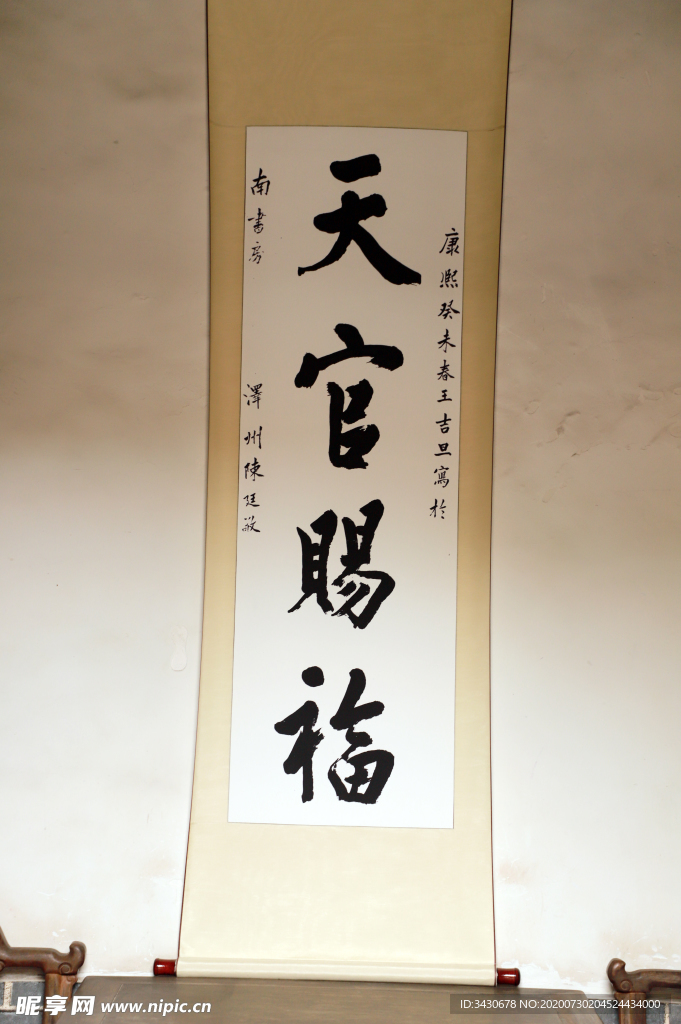 康熙癸未春王吉旦寫於
天官賜福
南書房
澤州陳廷敬
昵享网 www.nipic.cn
ID:3430678 NO:20200730204524434000